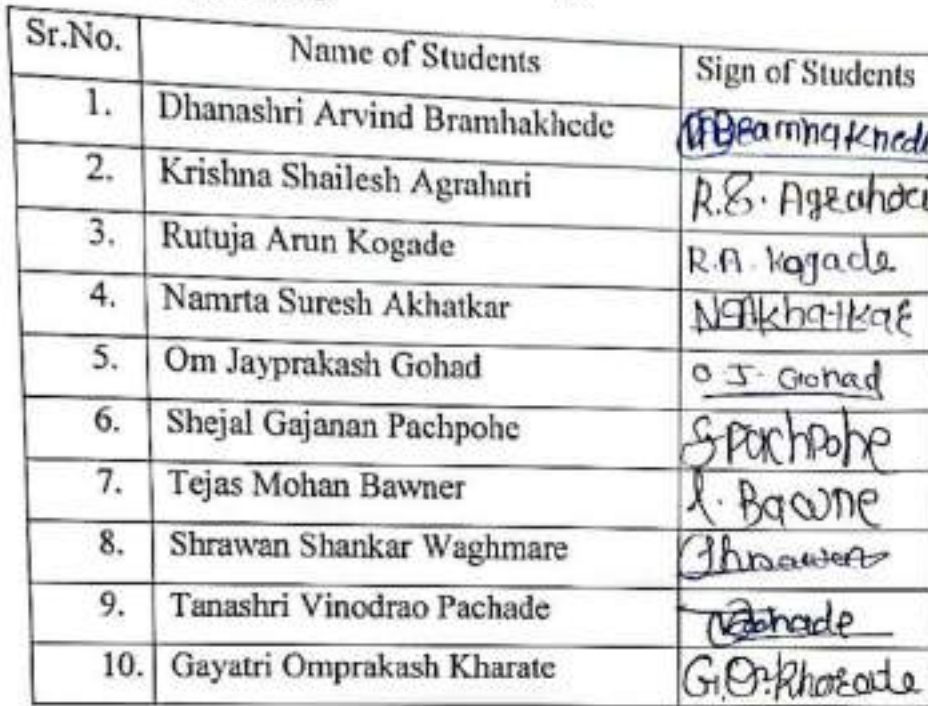 Sr.No. Name of Students Sign of Students
1. Dhanashri Arvind Bramhakhede
2. Krishna Shailesh Agrahari R.S. Agrahari
3. Rutuja Arun Kogade R.A. Kogade
4. Namrta Suresh Akhatkar NSAkhatkar
5. Om Jayprakash Gohad O J. Gohad
6. Shejal Gajanan Pachpohe S Pachpohe
7. Tejas Mohan Bawner Bawne
8. Shrawan Shankar Waghmare
9. Tanashri Vinodrao Pachade
10. Gayatri Omprakash Kharate G.O. Kharate